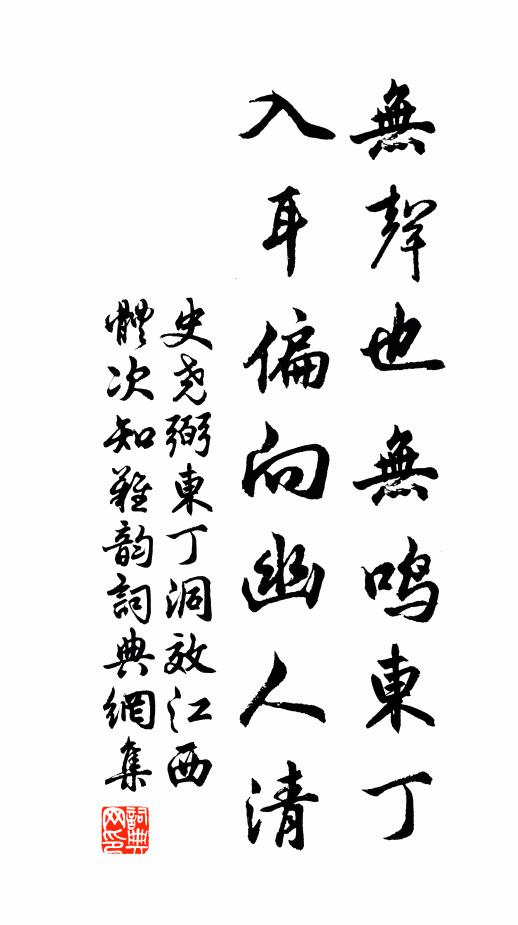 無聲也無鳴東丁
入耳偏向幽人清
史尧弼東丁洞效江西
體次知難韵詞典網集
詞典網印